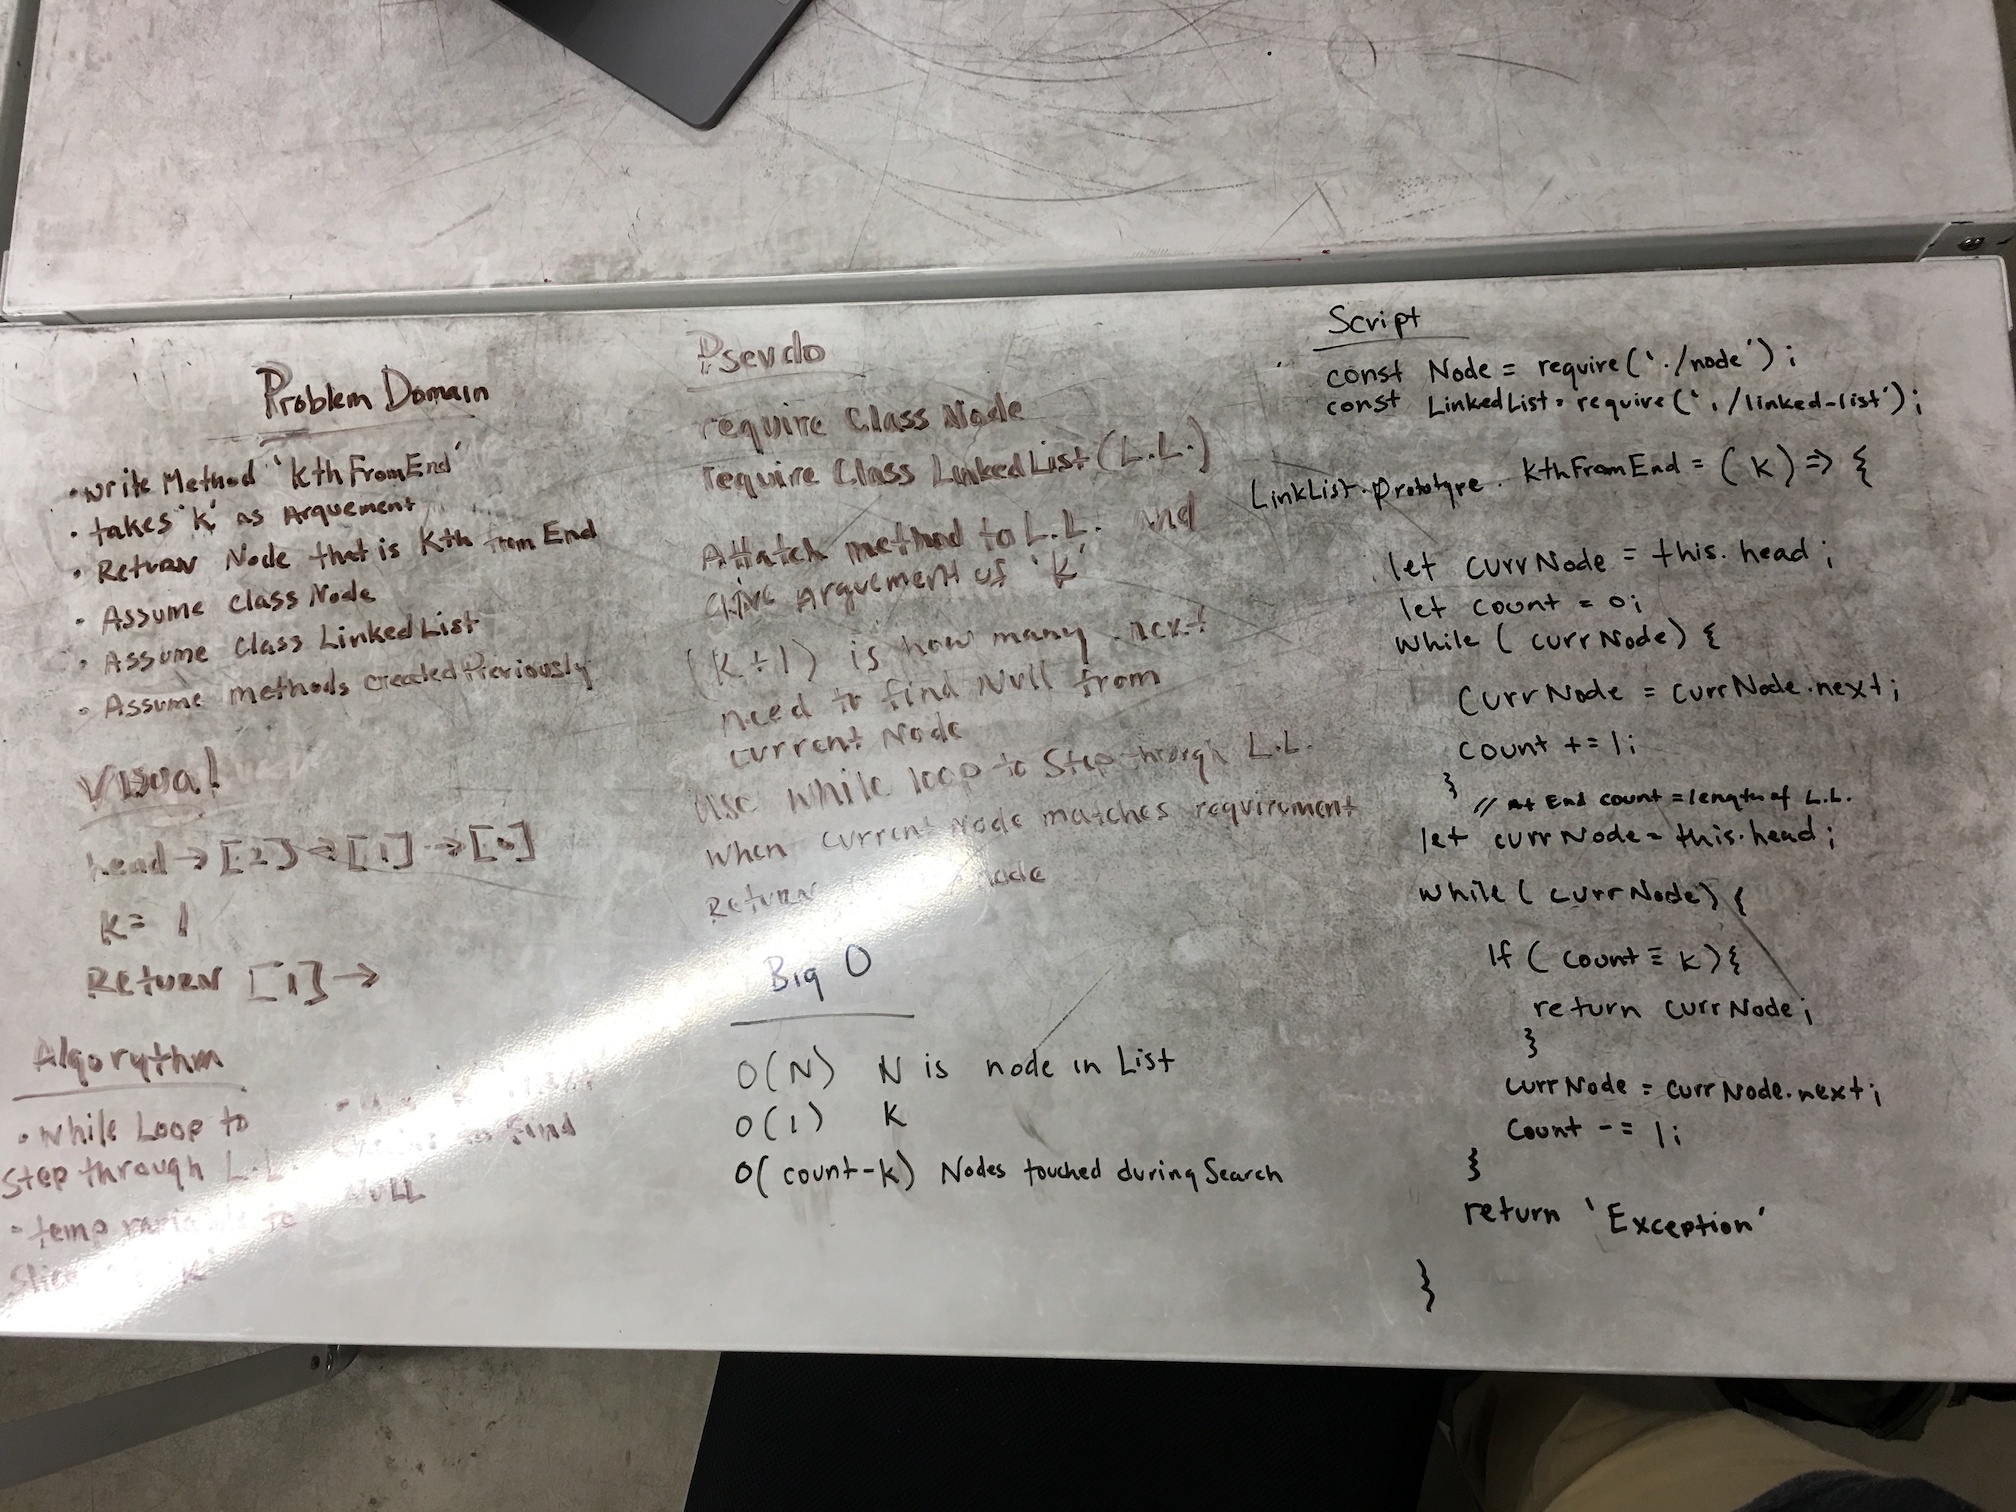 Problem Domain
• write Method 'kthFromEnd'
• takes 'k' as Arguement
• Return Node that is kth from End
• Assume Class Node
• Assume Class LinkedList
• Assume methods created Previously
Visual
head → [2] → [1] → [0]
k = 1
Return [1] →
Algorythm
• While Loop to
Step through L.L.
• temp variable to
k
Find
NULL
Psevdo
require Class Node
require Class LinkedList (L.L.)
Attatch method to L.L. and
give arguement of 'k'
(k+1) is how many .next
need to find Null from
current Node
use while loop to Step through L.L.
when current Node matches requirement
Return Node
Big O
O(N) N is node in List
O(1) K
O(count-k) Nodes touched during Search
Script
const Node = require('./node');
const LinkedList = require('./linked-list');
LinkList.prototype.kthFromEnd = (k) => {
let currNode = this.head;
let count = 0;
while (currNode) {
currNode = currNode.next;
count += 1;
}
// At End count = length of L.L.
let currNode = this.head;
while (currNode) {
If (count ≡ k) {
return currNode;
}
currNode = currNode.next;
count -= 1;
}
return 'Exception'
}